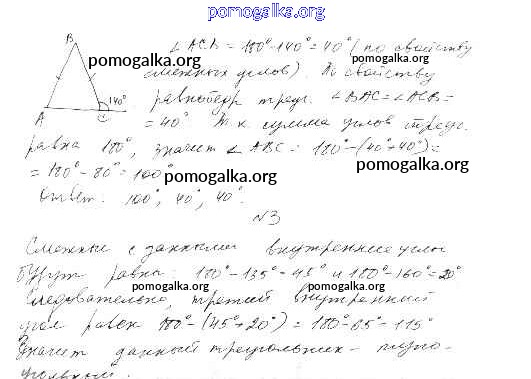 pomogalka.org
B
∠ACB = 180° - 140° = 40° (по свойству
pomogalka.org
смежных углов). По свойству
pomogalka.org
140°
равнобедр треуг. ∠BAC = ∠ACB =
A
C
= 40° Т.к сумма углов треуг.
pomogalka.org
равна 180°, значит ∠ABC = 180° - (40°+40°) =
pomogalka.org
= 180° - 80° = 100°
pomogalka.org
Ответ. 100°, 40°, 40°.
N3
Смежные с данными внутренние углы
будут равны: 180° - 135° = 45° и 180° - 160° = 20°
pomogalka.org
pomogalka.org
Следовательно, третий внутренний
угол равен 180° - (45°+20°) = 180° - 65° = 115°
Значит данный треугольник - тупо-
угольный.